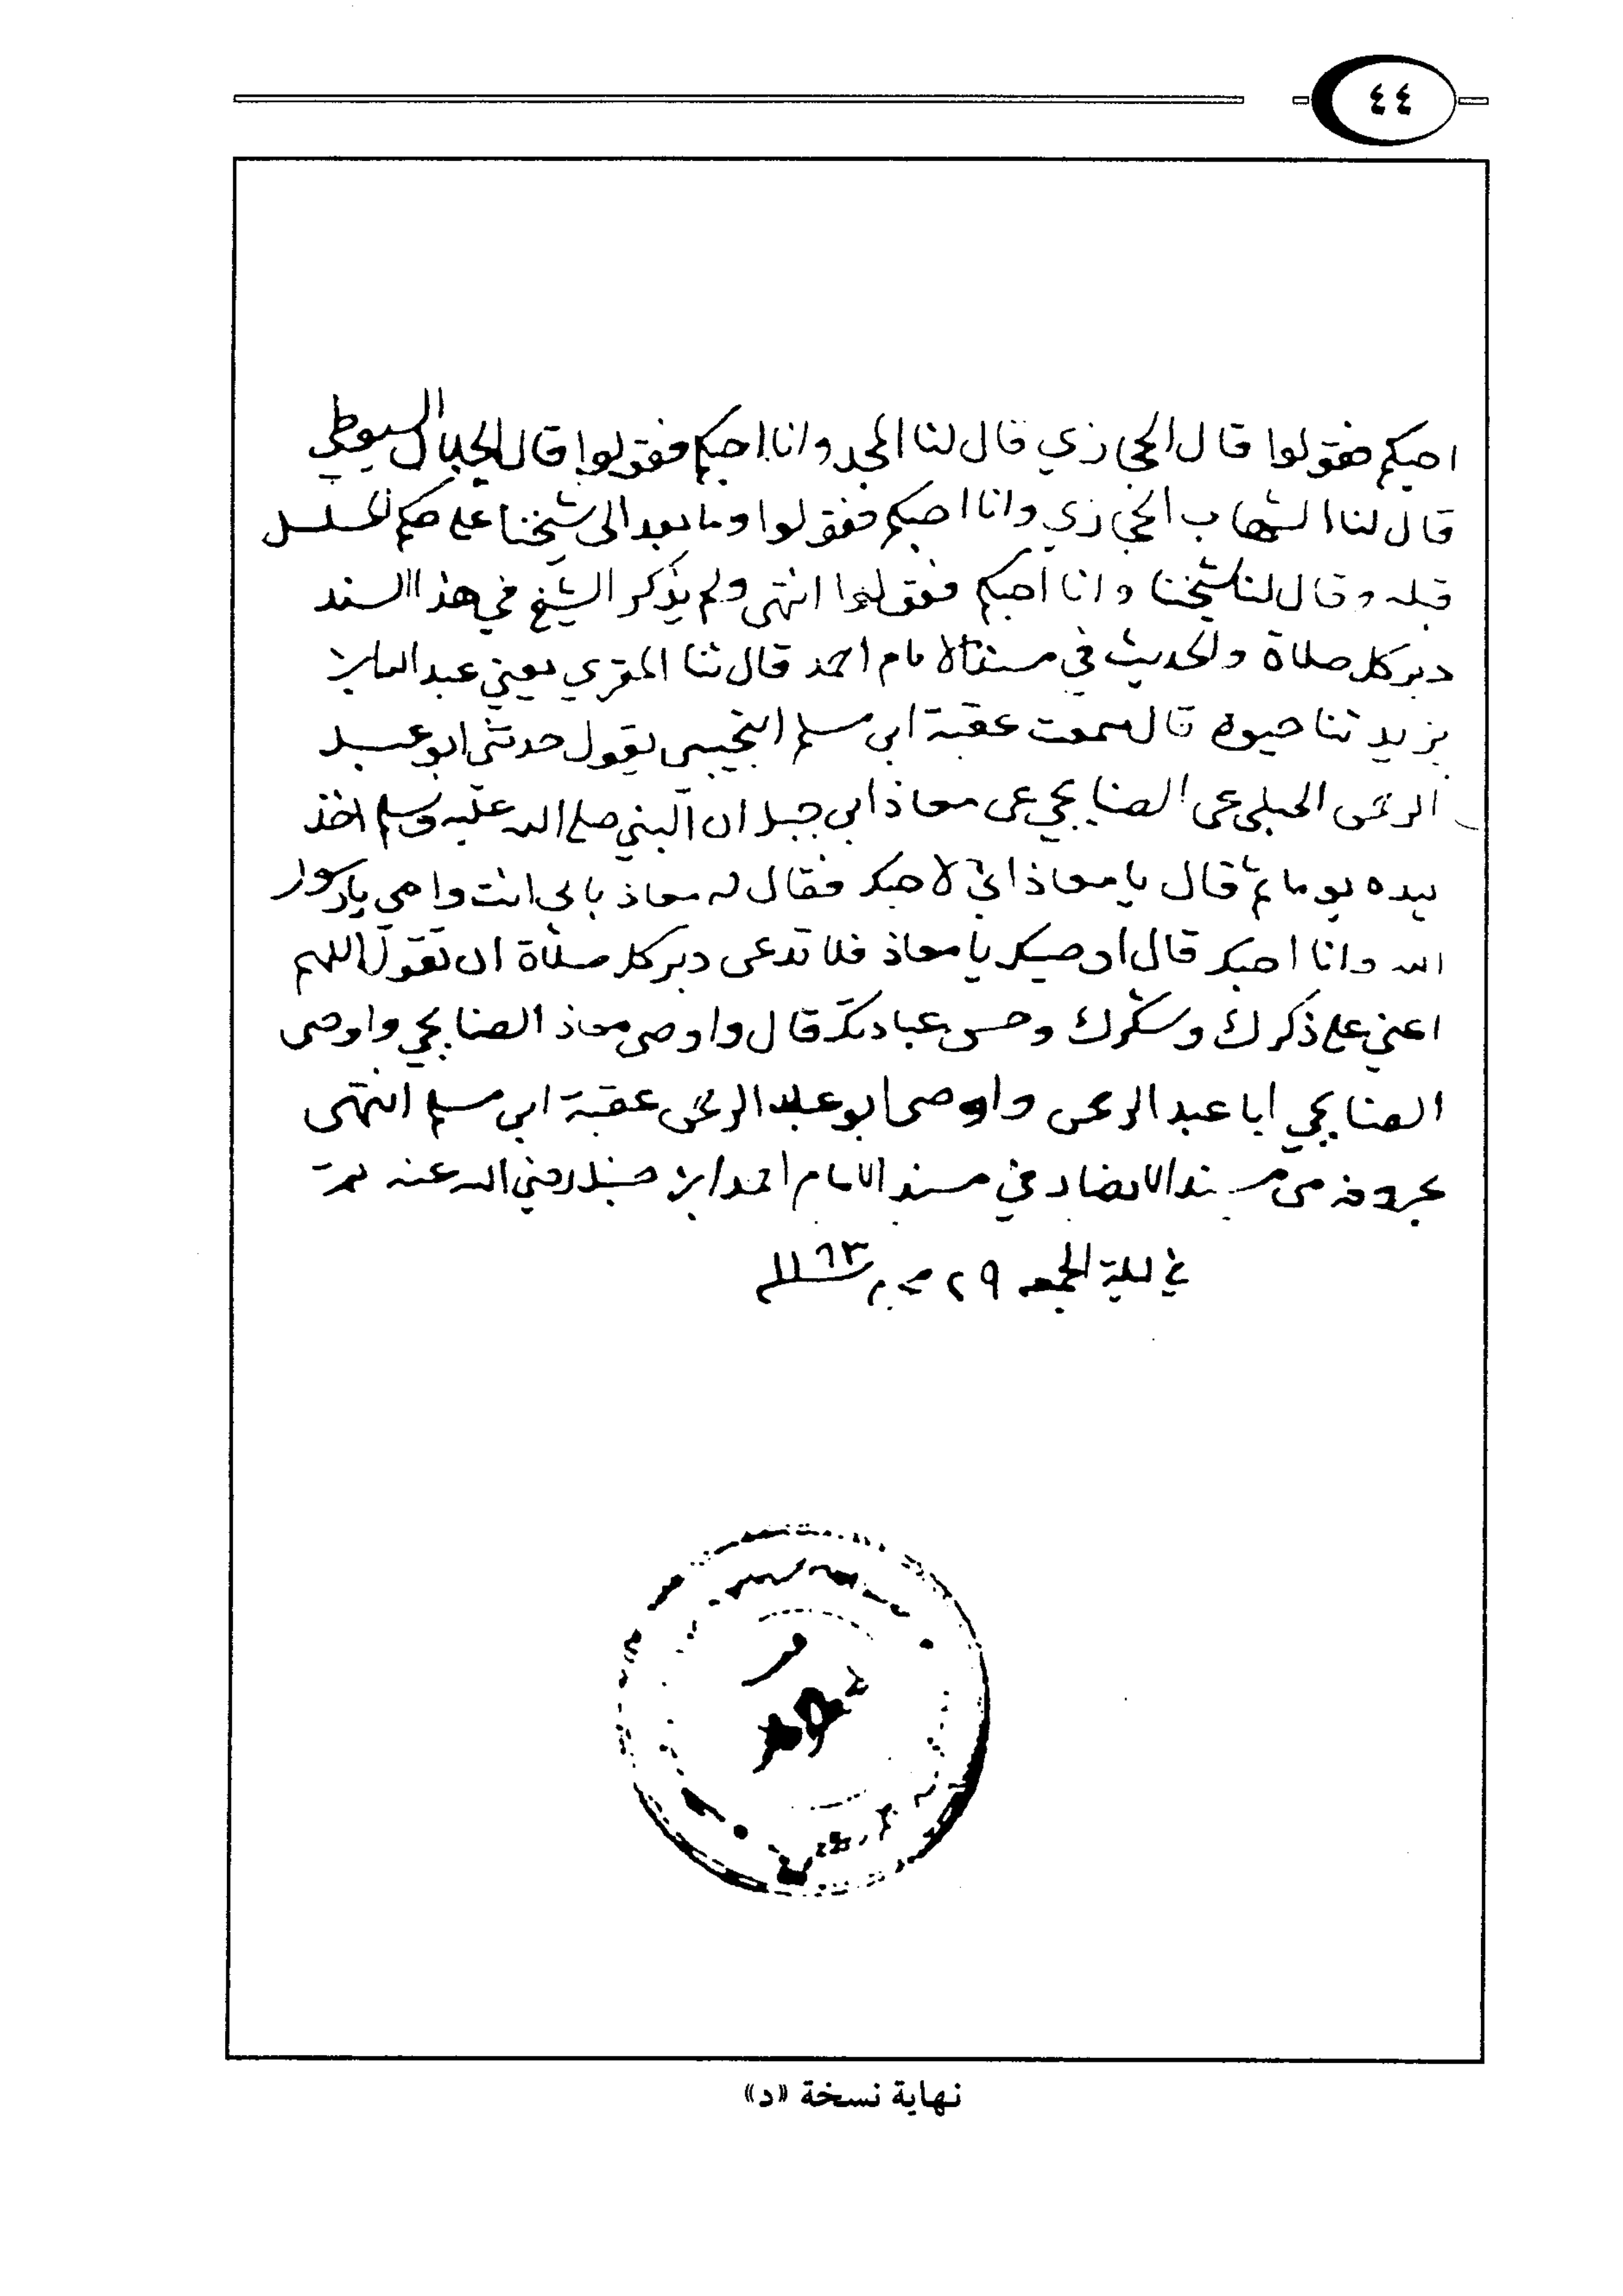 ٤٤
احبكم فقولوا قال الحجازي قال لنا المجد وانا احبكم فقولوا قال الجلال السيوطي
قال لنا الشهاب الحجازي وانا احبكم فقولوا وما بعد الى شيخنا على حكم المسلسل
قبله وقال لنا شيخنا وانا احبكم فقولوا انتهى ولم يذكر الشيخ في هذا السند
دبر كل صلاة والحديث في مسند الامام احمد قال ثنا المقري يعني عبد الله ابن
يزيد ثنا حيوة قال سمعت عقبة ابن مسلم التجيبي يقول حدثني ابو عبد
الرحمن الحبلي عن الصنابحي عن معاذ ابن جبل ان النبي صلى الله عليه وسلم اخذ
بيده يوما ثم قال يا معاذ اني لاحبك فقال له معاذ بابي انت وامي يا رسول
الله وانا احبك قال اوصيك يا معاذ فلا تدعن دبر كل صلاة ان تقول اللهم
اعني على ذكرك وشكرك وحسن عبادتك قال واوصى معاذ الصنابحي واوصى
الصنابحي ابا عبد الرحمن واوصى ابو عبد الرحمن عقبة ابن مسلم انتهى
بحروفه من مسند الانصار في مسند الامام احمد ابن حنبل رضي الله عنه تمت
في ليلة الجمعه ٢٩ محرم ١١٦٣
نهاية نسخة «د»